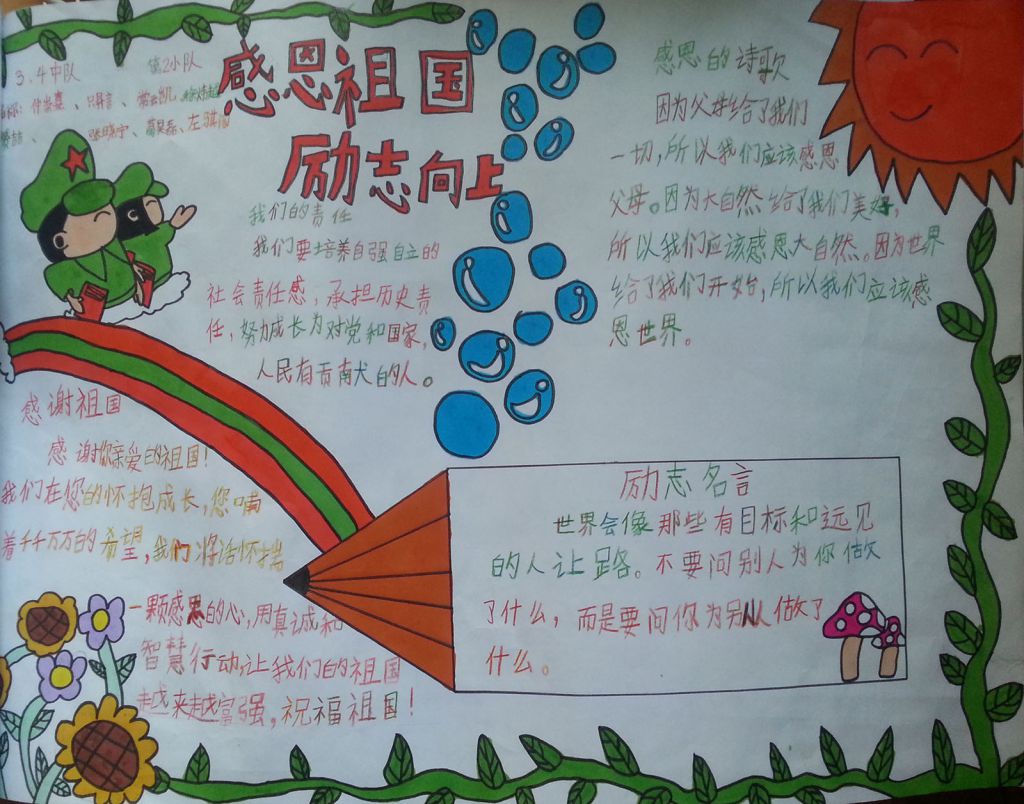 感恩祖国
励志向上
3.4中队 第2小队
我们的责任
我们要培养自强自立的
社会责任感，承担历史责
任，努力成长为对党和国家，
人民有贡献的人。
感恩的诗歌
因为父母给了我们
一切，所以我们应该感恩
父母。因为大自然给了我们美好，
所以我们应该感恩大自然。因为世界
给了我们开始，所以我们应该感
恩世界。
感谢祖国
感谢你亲爱的祖国！
我们在您的怀抱成长，您
着千千万万的希望，我们将
一颗感恩的心，用真诚和
智慧行动，让我们的祖国
越来越富强，祝福祖国！
励志名言
世界会像那些有目标和远见
的人让路。不要问别人为你做
了什么，而是要问你为别人做了
什么。